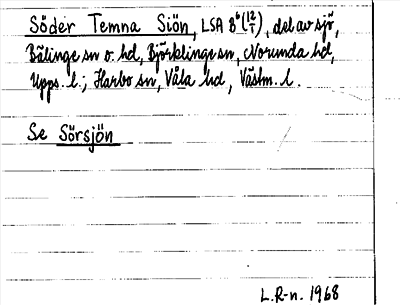 Söder Temna Siön, LSA 8⁶(12/7), del av sjö,
Bälinge sn o. hd, Björklinge sn, Norunda hd,
Upps. l., Harbo sn, Våla hd, Västm. l.
Se Sörsjön
L.R-n. 1968